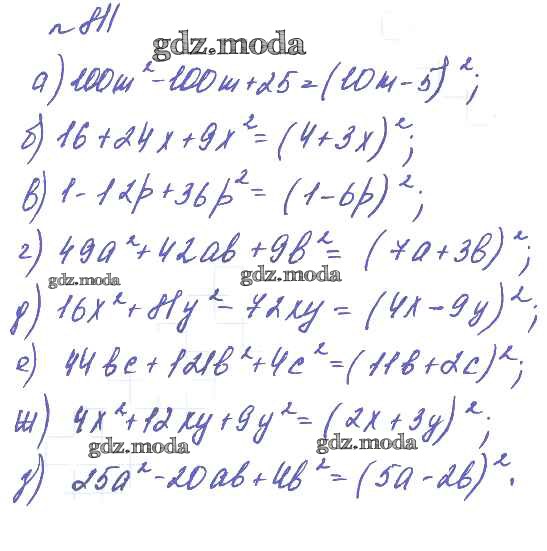 № 811
gdz.moda
а) 100m² - 100m + 25 = (10m - 5)²;
б) 16 + 24x + 9x² = (4 + 3x)²;
в) 1 - 12p + 36p² = (1 - 6p)²;
г) 49a² + 42ab + 9b² = (7a + 3b)²;
gdz.moda gdz.moda
д) 16x² + 81y² - 72xy = (4x - 9y)²;
е) 44bc + 121b² + 4c² = (11b + 2c)²;
ж) 4x² + 12xy + 9y² = (2x + 3y)²;
gdz.moda gdz.moda
з) 25a² - 20ab + 4b² = (5a - 2b)².